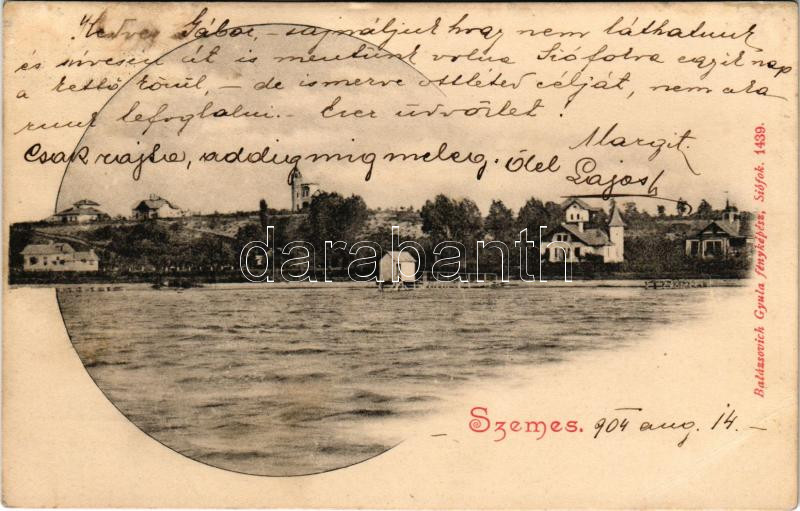 Kedves Gábor, – sajnáljuk hogy nem láthatunk
és szívesen át is mentünk volna Siófokra egyik nap
a kettő közül, – de ismerve ottléted célját, nem aka
runk lefoglalni. – Ezer üdvözlet.
Margit.
Csak rajta, addig míg meleg. Ölel
Lajos
darabanth
Szemes. 904 aug. 14. –
Balázsovich Gyula fényképész, Siófok. 1439.